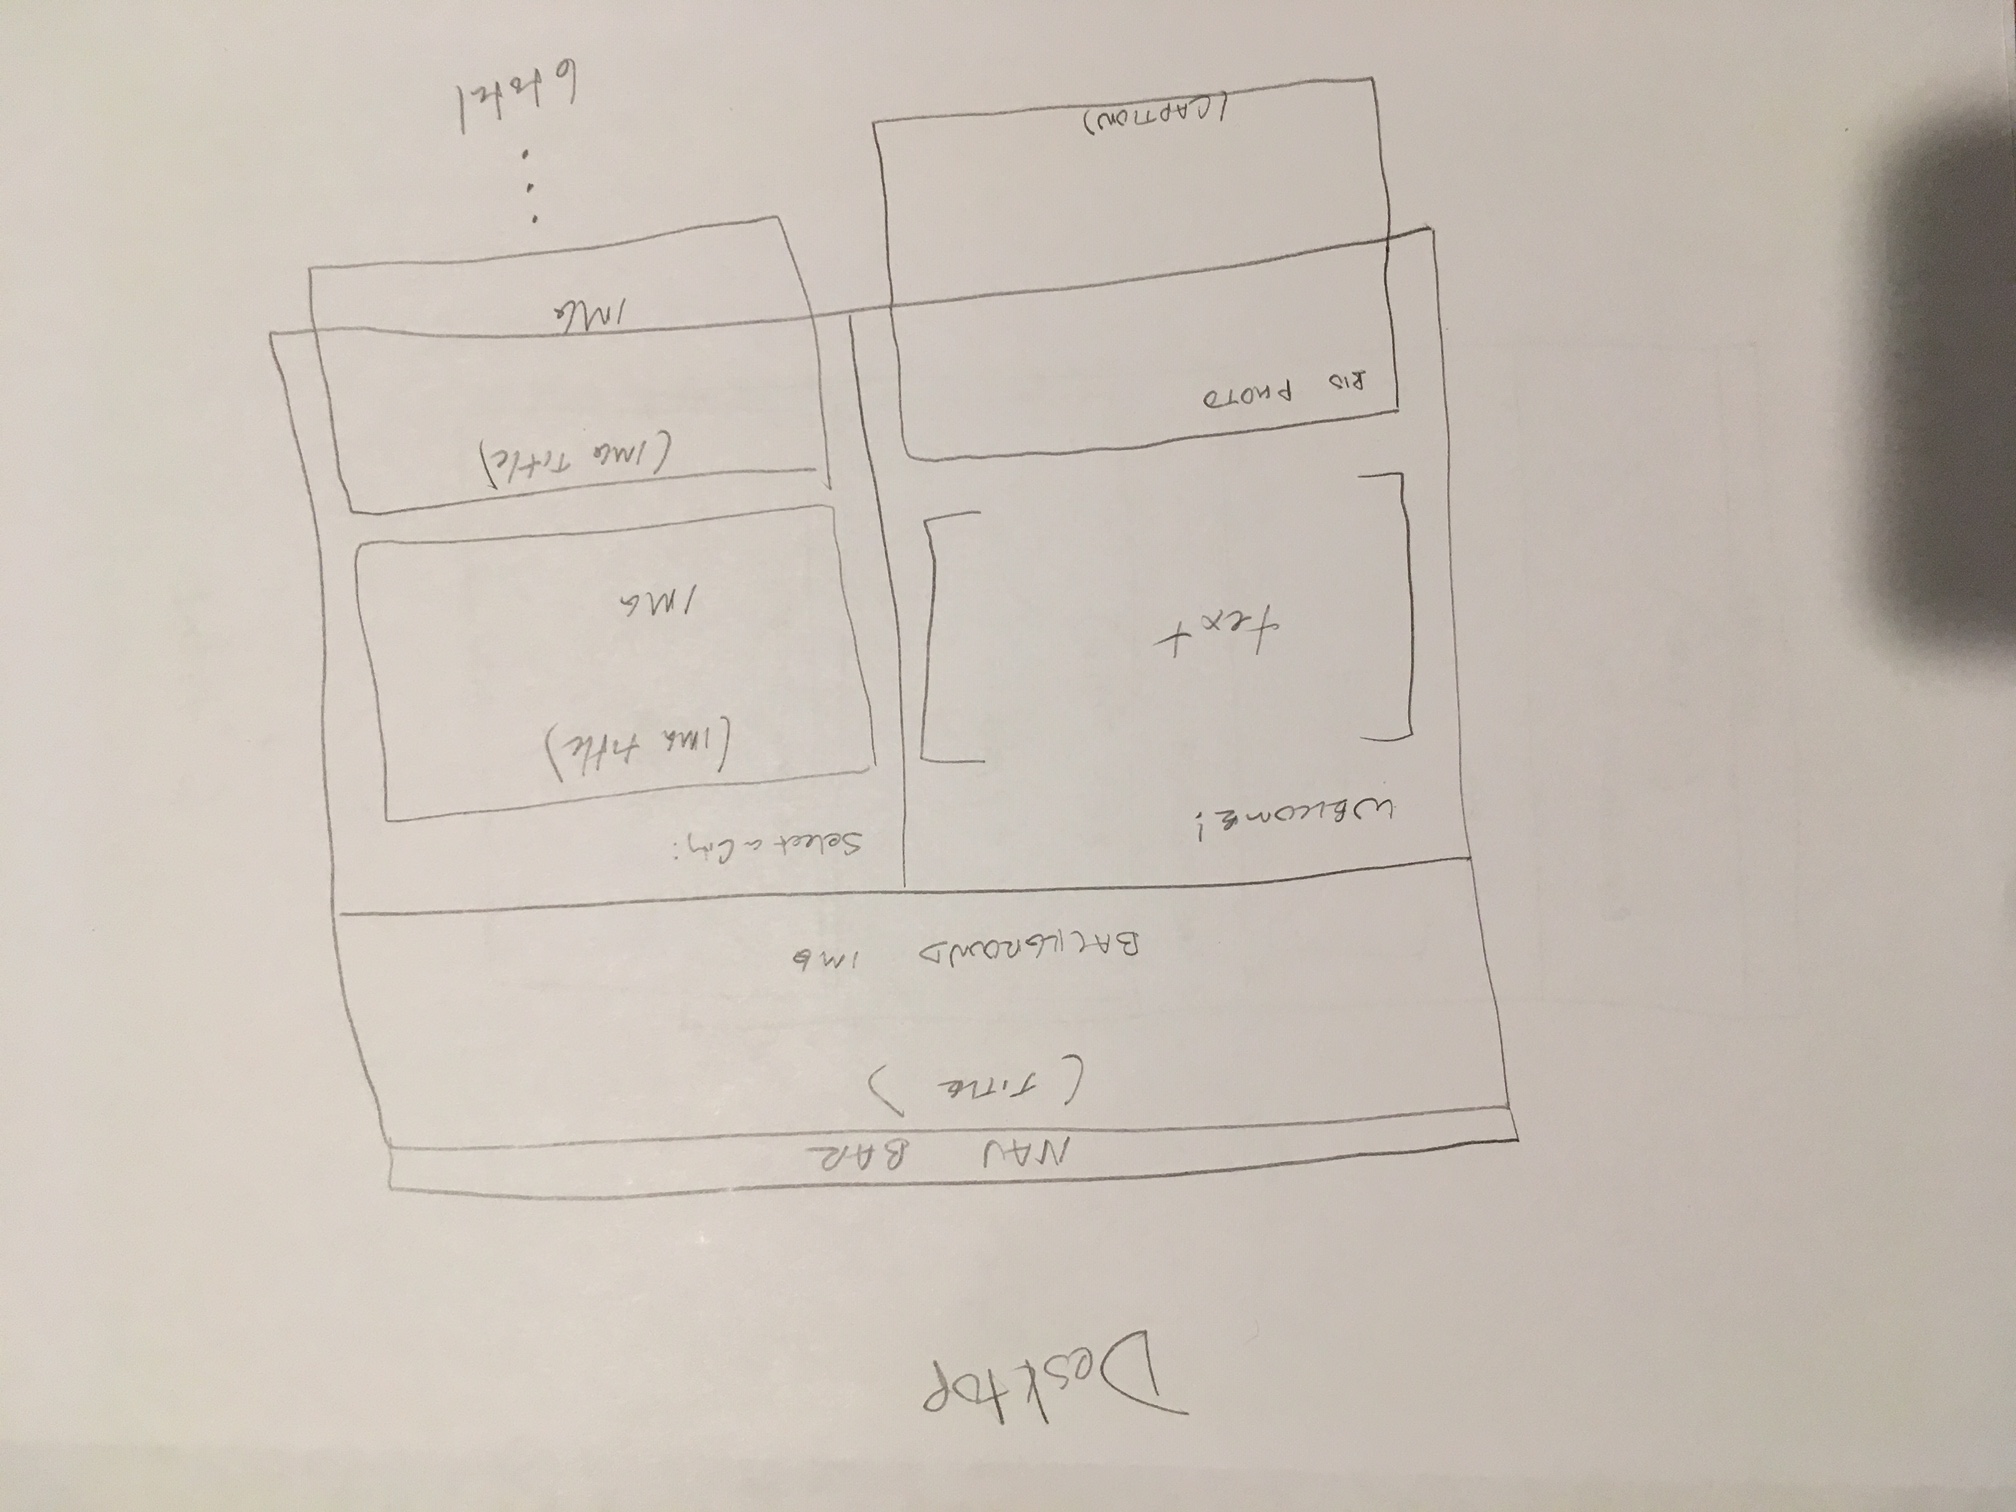 Desktop
NAV BAR
(TITLE)
BACKGROUND IMG
WELCOME!
text
BIO PHOTO
(CAPTION)
Select a City:
(IMG title)
IMG
(IMG TITLE)
IMG
6 total